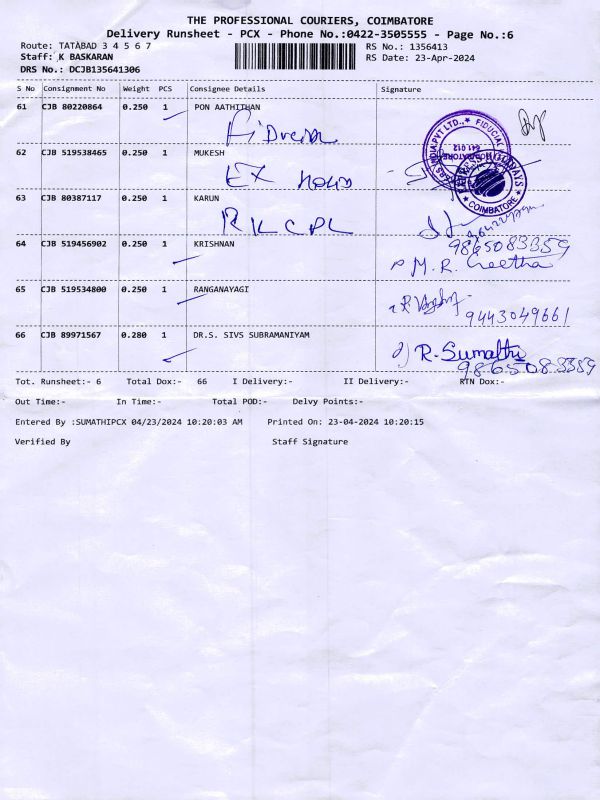 THE PROFESSIONAL COURIERS, COIMBATORE
Delivery Runsheet - PCX - Phone No.:0422-3505555 - Page No.:6
Route: TATABAD 3 4 5 6 7
RS No.: 1356413
Staff: K BASKARAN
RS Date: 23-Apr-2024
DRS No.: DCJB135641306
S No Consignment No Weight PCS Consignee Details Signature
61 CJB 80220864 0.250 1 PON AATHITHAN
62 CJB 519538465 0.250 1 MUKESH
EX
63 CJB 80387117 0.250 1 KARUN
COIMBATORE
64 CJB 519456902 0.250 1 KRISHNAN
9865083359
M. R. Geetha
65 CJB 519534800 0.250 1 RANGANAYAGI
9443049661
66 CJB 89971567 0.280 1 DR.S. SIVS SUBRAMANIYAM
R. Sumathi
9865083359
Tot. Runsheet:- 6 Total Dox:- 66 I Delivery:- II Delivery:- RTN Dox:-
Out Time:- In Time:- Total POD:- Delvy Points:-
Entered By :SUMATHIPCX 04/23/2024 10:20:03 AM Printed On: 23-04-2024 10:20:15
Verified By Staff Signature